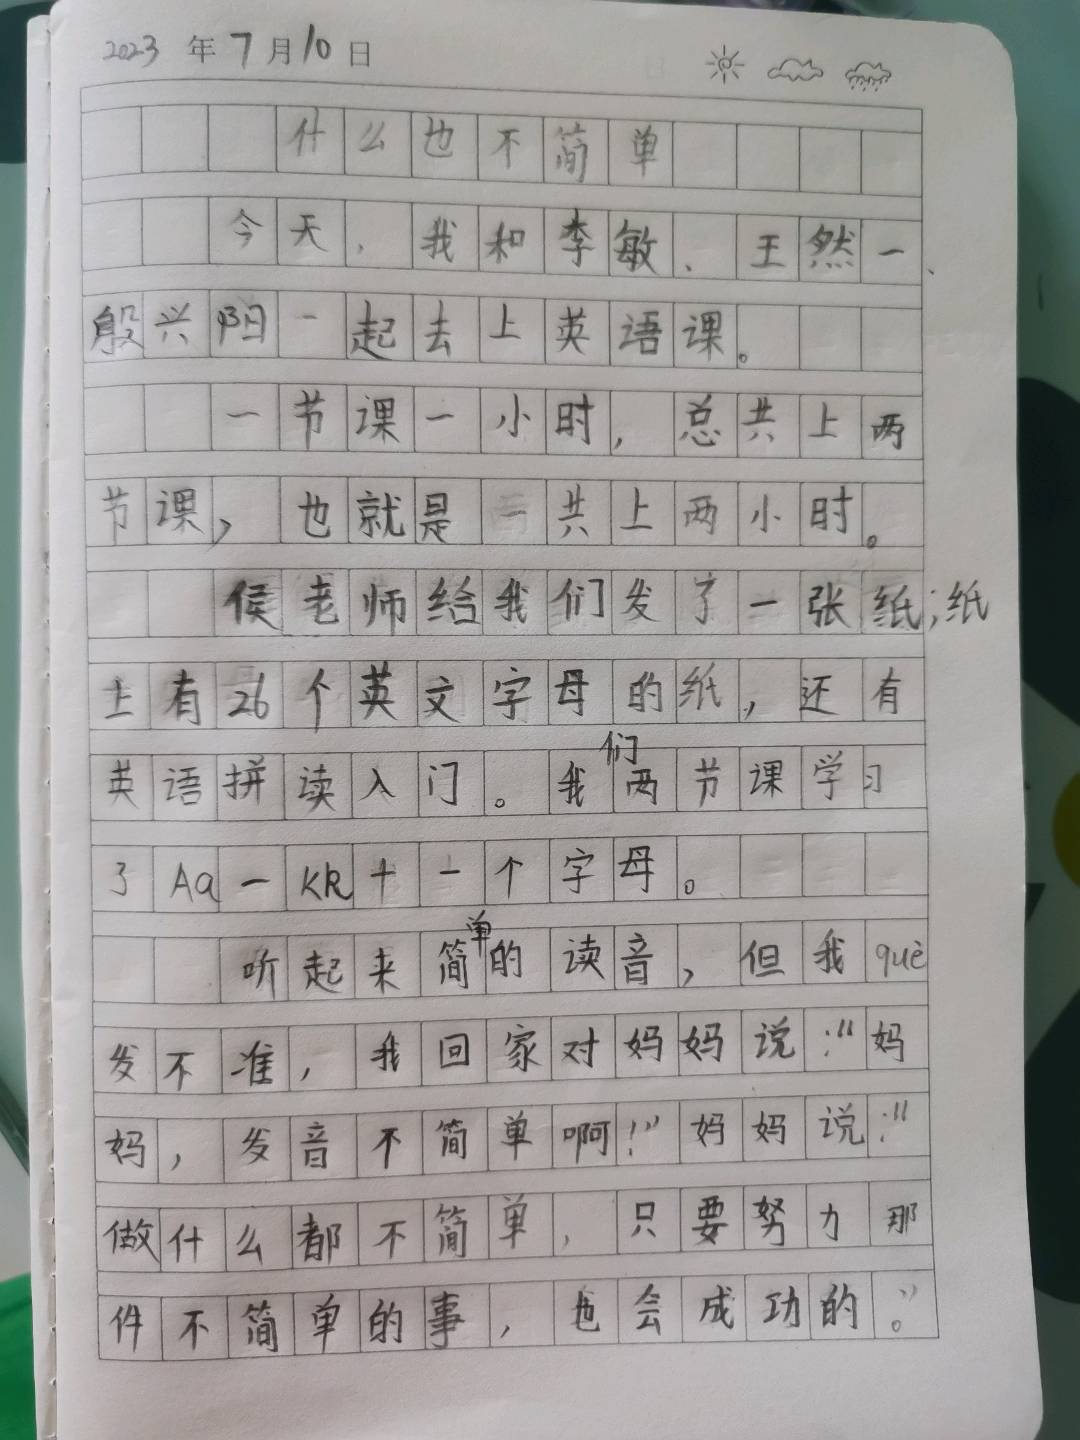 2023 年 7 月 10 日
什么也不简单
今天，我和李敏、王然一、
般兴阳一起去上英语课。
一节课一小时，总共上两
节课，也就是一共上两小时。
侯老师给我们发了一张纸；纸
上有26个英文字母的纸，还有
英语拼读入门。我们两节课学习
了Aa一Kk十一个字母。
听起来简单的读音，但我què
发不准，我回家对妈妈说："妈
妈，发音不简单啊！"妈妈说："
做什么都不简单，只要努力那
件不简单的事，也会成功的。"